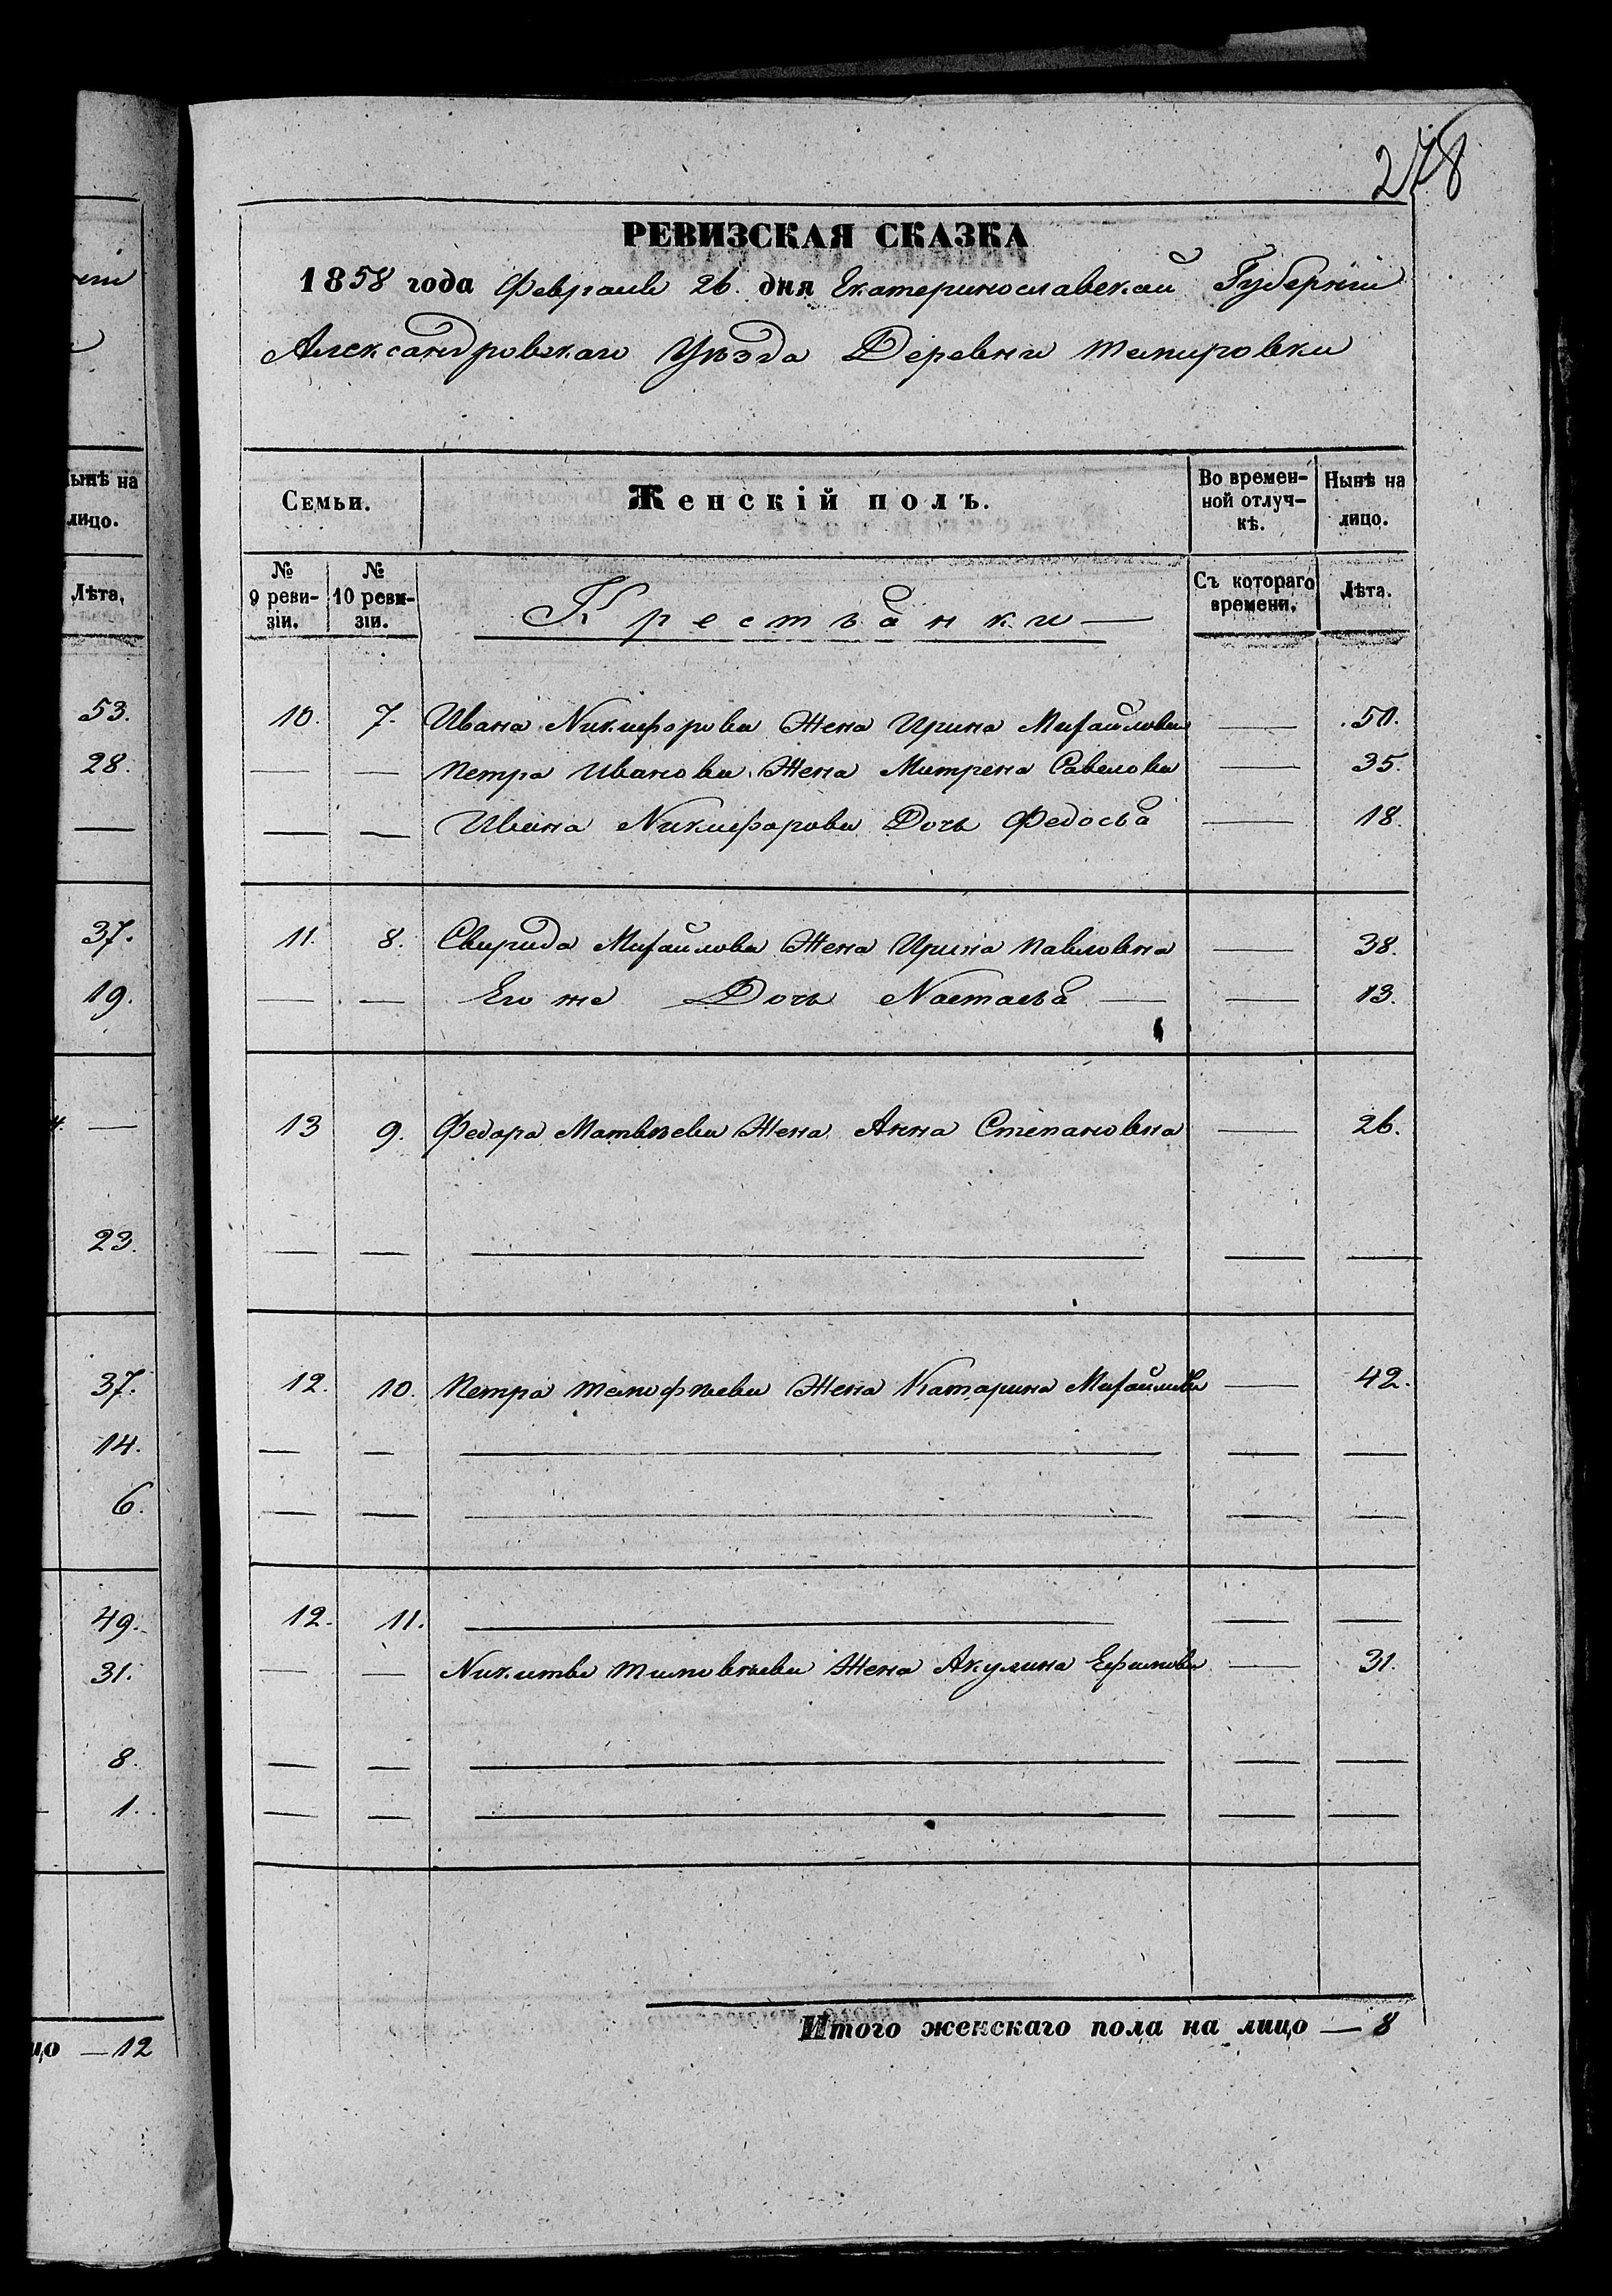 278
РЕВИЗСКАЯ СКАЗКА
1858 года Февраля 26. дня Екатеринославской Губерніи
Александровскаго Уѣзда Деревни
Семьи. Женскій полъ. Во времен-ной отлуч-кѣ. Нынѣ на лицо.
№ 9 реви-зіи. № 10 реви-зіи. Крестьянки — Съ котораго времени. Лѣта.
10. 7. Ивана Никифорова Жена Ирина Михайлова — 50.
— — Петра Иванова Жена Матрена Савелова — 35.
— — Ивана Никифорова Дочь Федосья — 18.
11. 8. Свирида Михайлова Жена Ирина Павловна — 38.
— — Его же Дочь Настасья — — 13.
13 9. Федора Матвѣева Жена Анна Степановна — 26.
— — — — —
12. 10. Петра Жена Катарина Михайлова — 42.
— — — — —
— — — — —
12. 11. — — —
— — Никиты Жена Акулина Ефимова — 31.
— — — — —
— — — — —
Итого женскаго пола на лицо — 8
ынѣ на
лицо.
Лѣта.
53.
28.
—
37.
19.
—
23.
37.
14.
6.
49.
31.
8.
1.
цо — 12